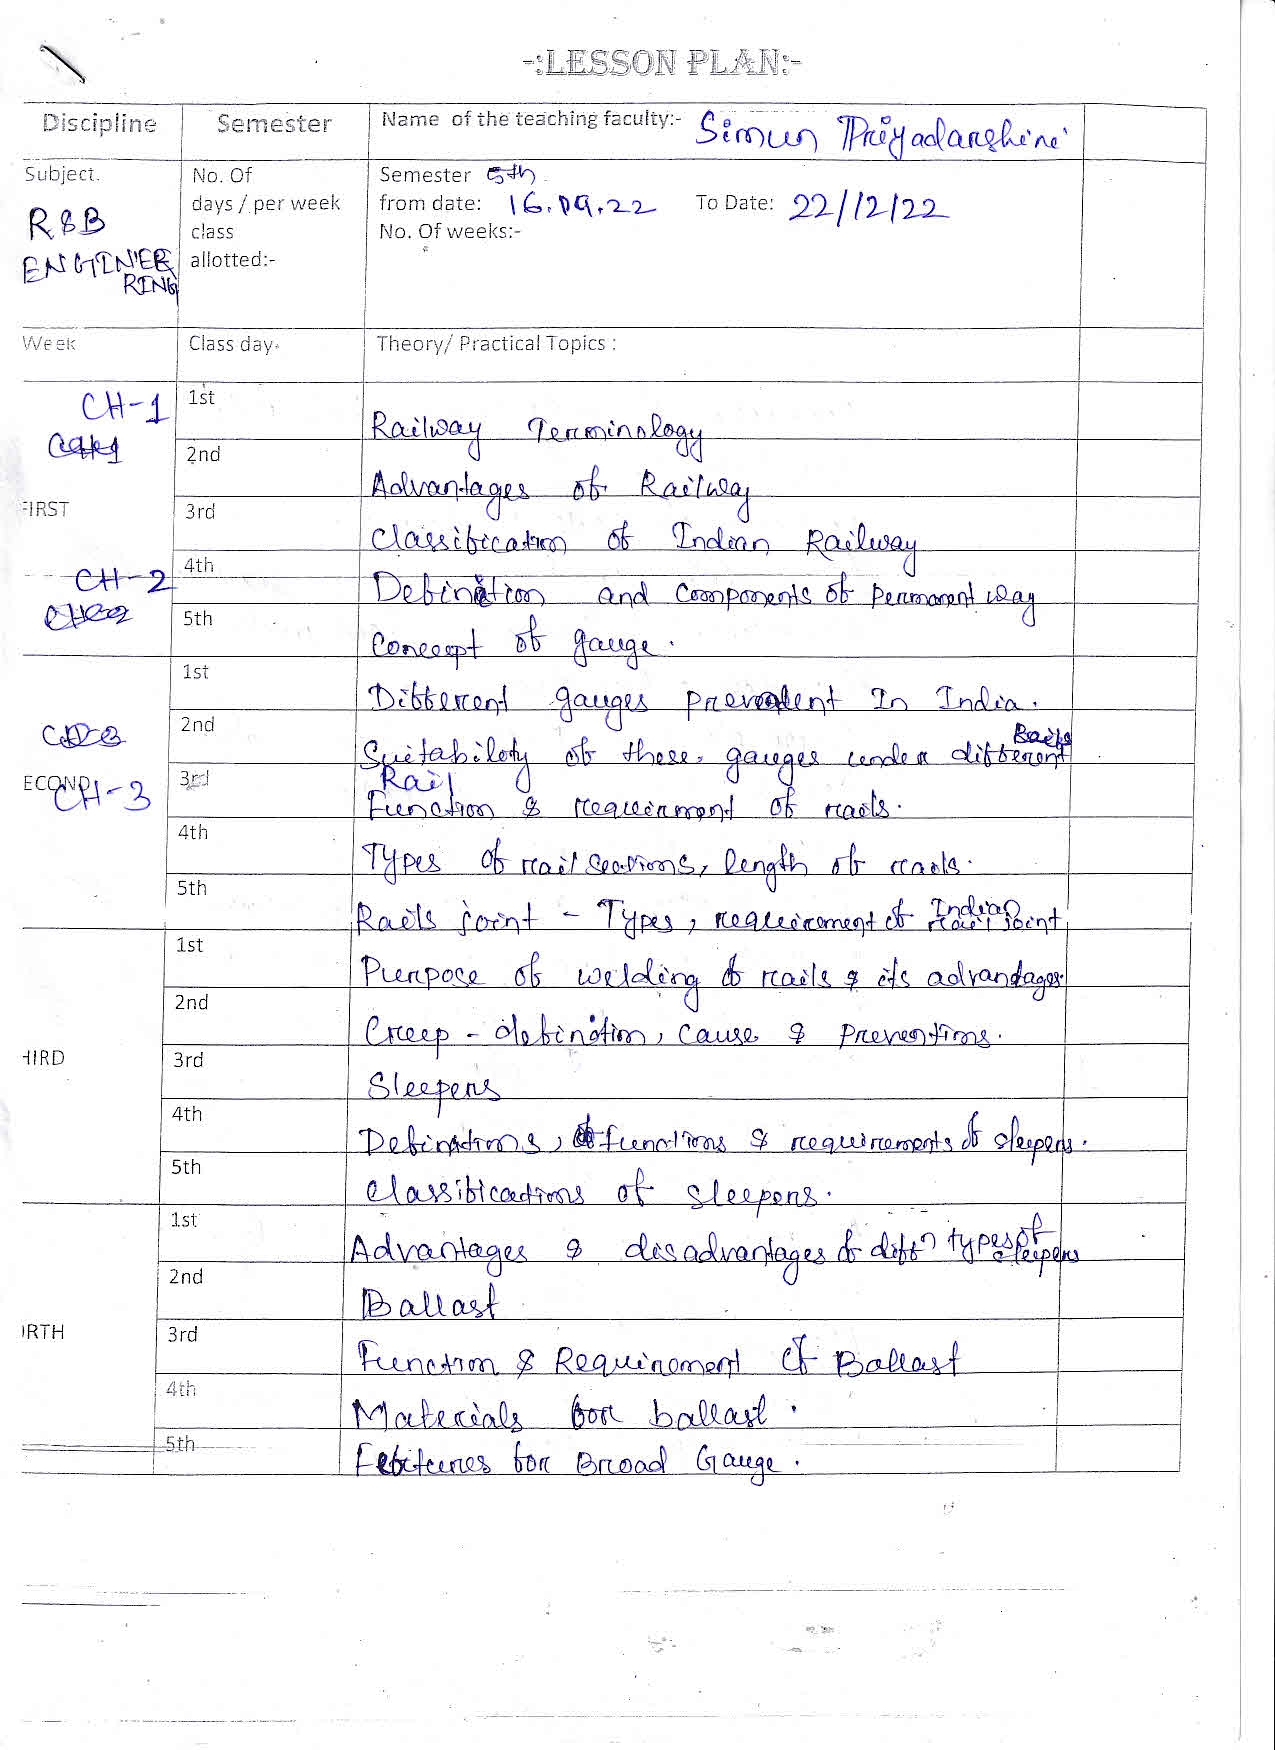 -:LESSON PLAN:-
Discipline Semester Name of the teaching faculty:- Simun Priyadarshini
Subject. No. Of Semester 5th
days / per week from date: 16.09.22 To Date: 22/12/22
R&B class No. Of weeks:-
ENGINEE allotted:-
RING
Week Class day. Theory/ Practical Topics :
CH-1 1st Railway Terminology
2nd Advantages of Railway
FIRST 3rd Classification of Indian Railway
CH-2 4th Definition and components of permanent way
5th Concept of gauge.
1st Different gauges prevalent In India.
2nd Suitability of these gauges under different
ECOND CH-3 3rd Rail
Function & requirment of rails.
4th Types of rail sections, length of rails.
5th Rails joint - Types, requirement of Indian rail joint
1st Purpose of welding of rails & its advantages.
2nd Creep - definition, cause & preventions.
HIRD 3rd Sleepers
4th Definitions, functions & requirements of sleepers.
5th Classifications of sleepers.
1st Advantages & disadvantages of diffn types of sleepers
2nd Ballast
RTH 3rd Function & Requirement of Ballast
4th Materials for ballast.
5th for Broad Gauge.